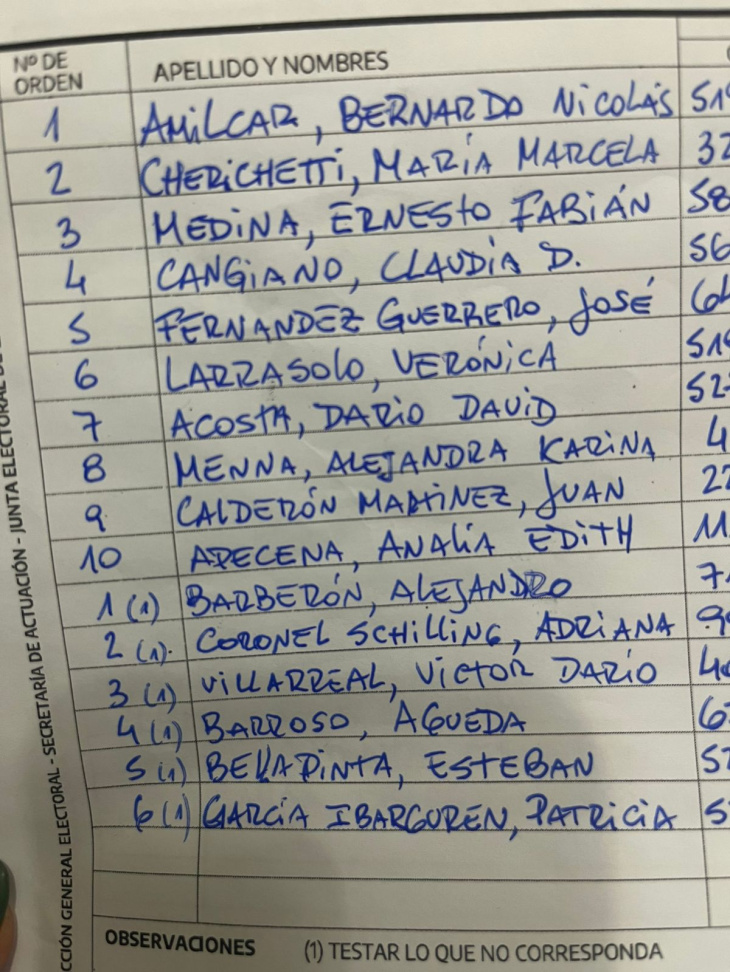 Nº DE ORDEN APELLIDO Y NOMBRES
1 AMILCAR, BERNARDO NICOLÁS 519
2 CHERICHETTI, MARÍA MARCELA 32
3 MEDINA, ERNESTO FABIÁN 58
4 CANGIANO, CLAUDIA D. 56
5 FERNANDEZ GUERRERO, JOSÉ 64
6 LARRASOLO, VERÓNICA 519
7 ACOSTA, DARIO DAVID 52
8 MENNA, ALEJANDRA KARINA 4
9 CALDERÓN MARTINEZ, JUAN 22
10 ARECENA, ANALÍA EDITH 11
1 (1) BARBERÓN, ALEJANDRO 7
2 (1). CORONEL SCHILLING, ADRIANA 99
3 (1) VILLARREAL, VICTOR DARÍO 40
4 (1) BARROSO, AGUEDA 6
5 (1) BELLAPINTA, ESTEBAN 5
6 (1) GARCÍA IBARGUREN, PATRICIA 5
OBSERVACIONES (1) TESTAR LO QUE NO CORRESPONDA
CCIÓN GENERAL ELECTORAL - SECRETARÍA DE ACTUACIÓN - JUNTA ELECTORAL